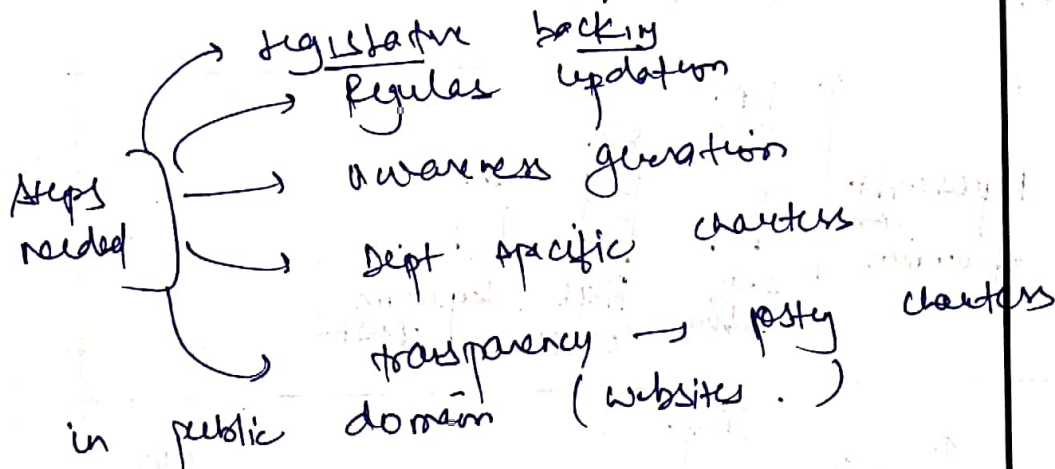 legislative backing
Regular updation
Steps needed
awareness generation
Dept specific charters
transparency → postg charters
in public domain (websites . )